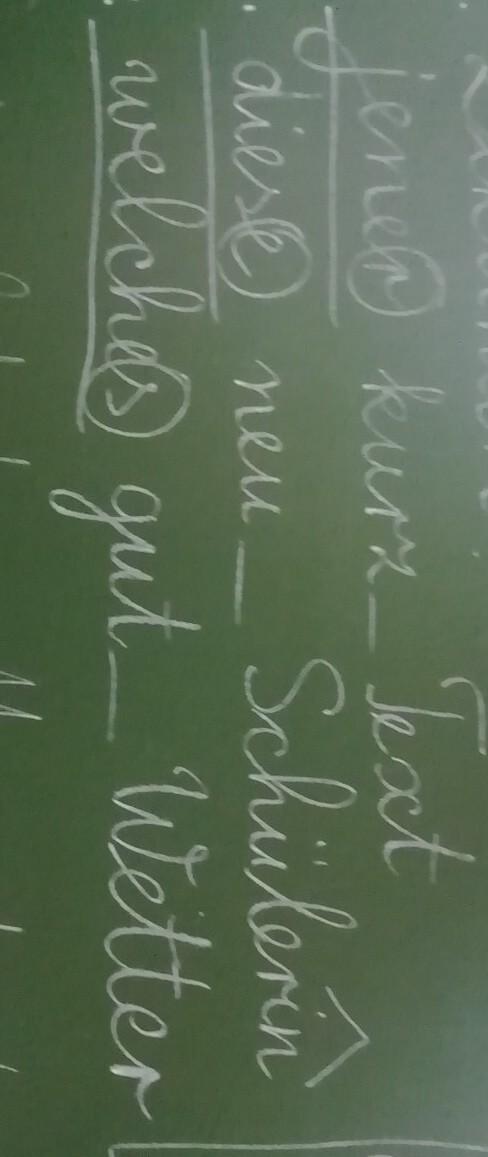 jener kurz_ Text
diese neu_ Schülerin
welches gut_ Wetter